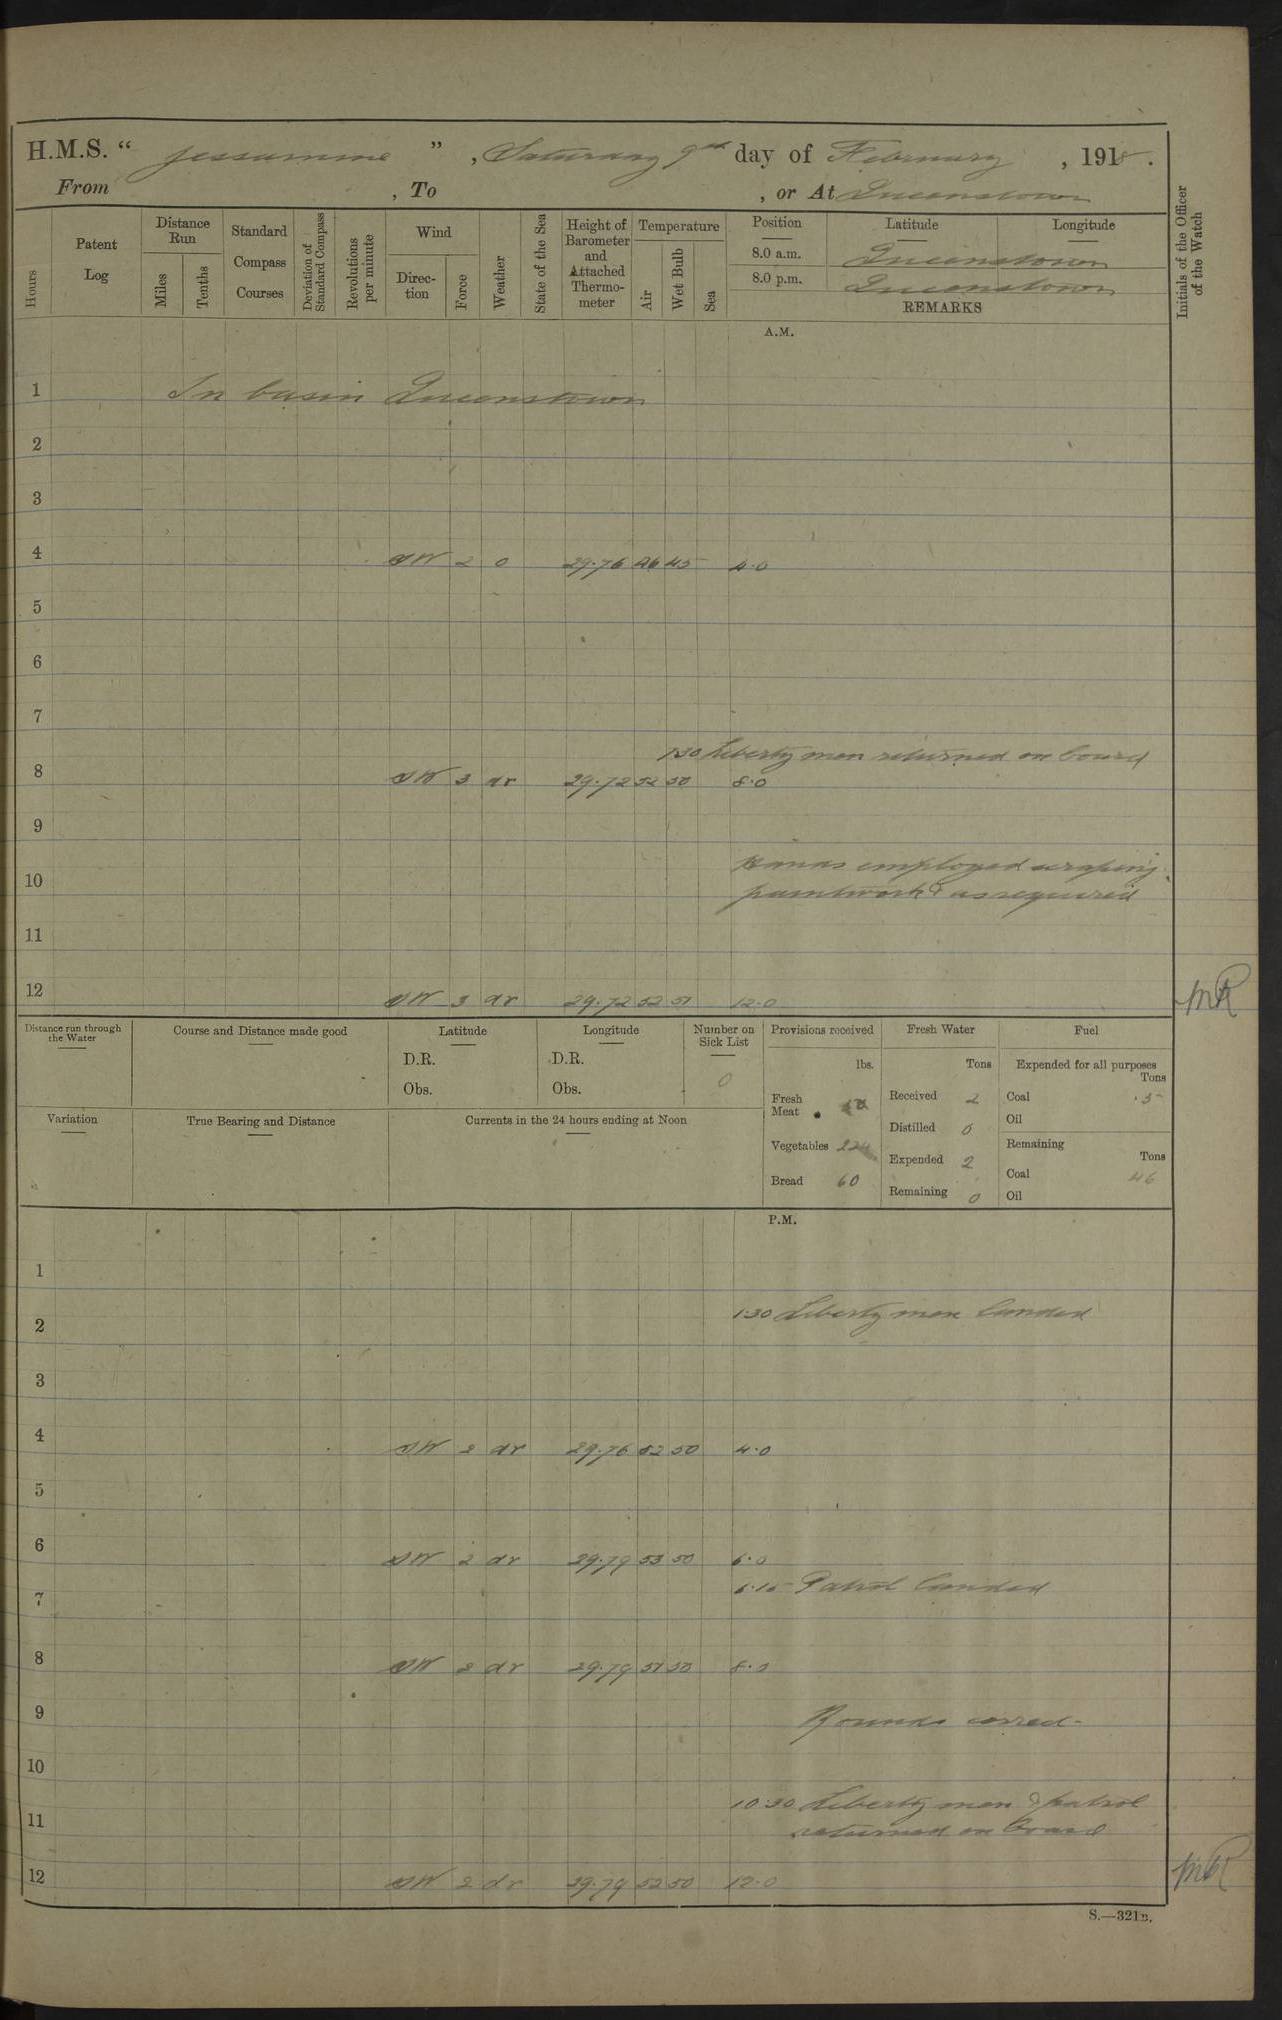 H.M.S. “ Jessamine ” , Saturday 9th day of February , 1918 .
From , To , or At Queenstown
Hours
Patent Log
Distance Run
Miles
Tenths
Standard Compass Courses
Deviation of Standard Compass
Revolutions per minute
Wind
Direction
Force
Weather
State of the Sea
Height of Barometer and Attached Thermometer
Temperature
Air
Wet Bulb
Sea
Position Latitude Longitude
8.0 a.m. Queenstown
8.0 p.m. Queenstown
REMARKS
Initials of the Officer of the Watch
A.M.
1 In basin Queenstown
2
3
4 SW 2 o 29.76 46 45 4.0
5
6
7
Liberty men returned on board
8 SW 3 dr 29.72 52 50 8.0
9
Hands employed scraping
10
paintwork & as required
11
12 SW 3 dr 29.72 52 51 12.0 MR
Distance run through the Water
Course and Distance made good
Latitude
D.R.
Obs.
Longitude
D.R.
Obs.
Number on Sick List
0
Provisions received
lbs.
Fresh Meat
Vegetables 224
Bread 60
Fresh Water
Tons
Received 2
Distilled 0
Expended 2
Remaining 0
Fuel
Expended for all purposes
Tons
Coal .5
Oil
Remaining
Tons
Coal 46
Oil
Variation
True Bearing and Distance
Currents in the 24 hours ending at Noon
P.M.
1
1.30 Liberty men landed
2
3
4 SW 2 dr 29.76 52 50 4.0
5
6 SW 2 dr 29.79 53 50 6.0
6.15 Patrol landed
7
8 SW 2 dr 29.79 51 50 8.0
9 Rounds correct
10
10.30 Liberty men & patrol
11 returned on board
12 SW 2 dr 29.79 52 50 12.0 MR
S.—321B.